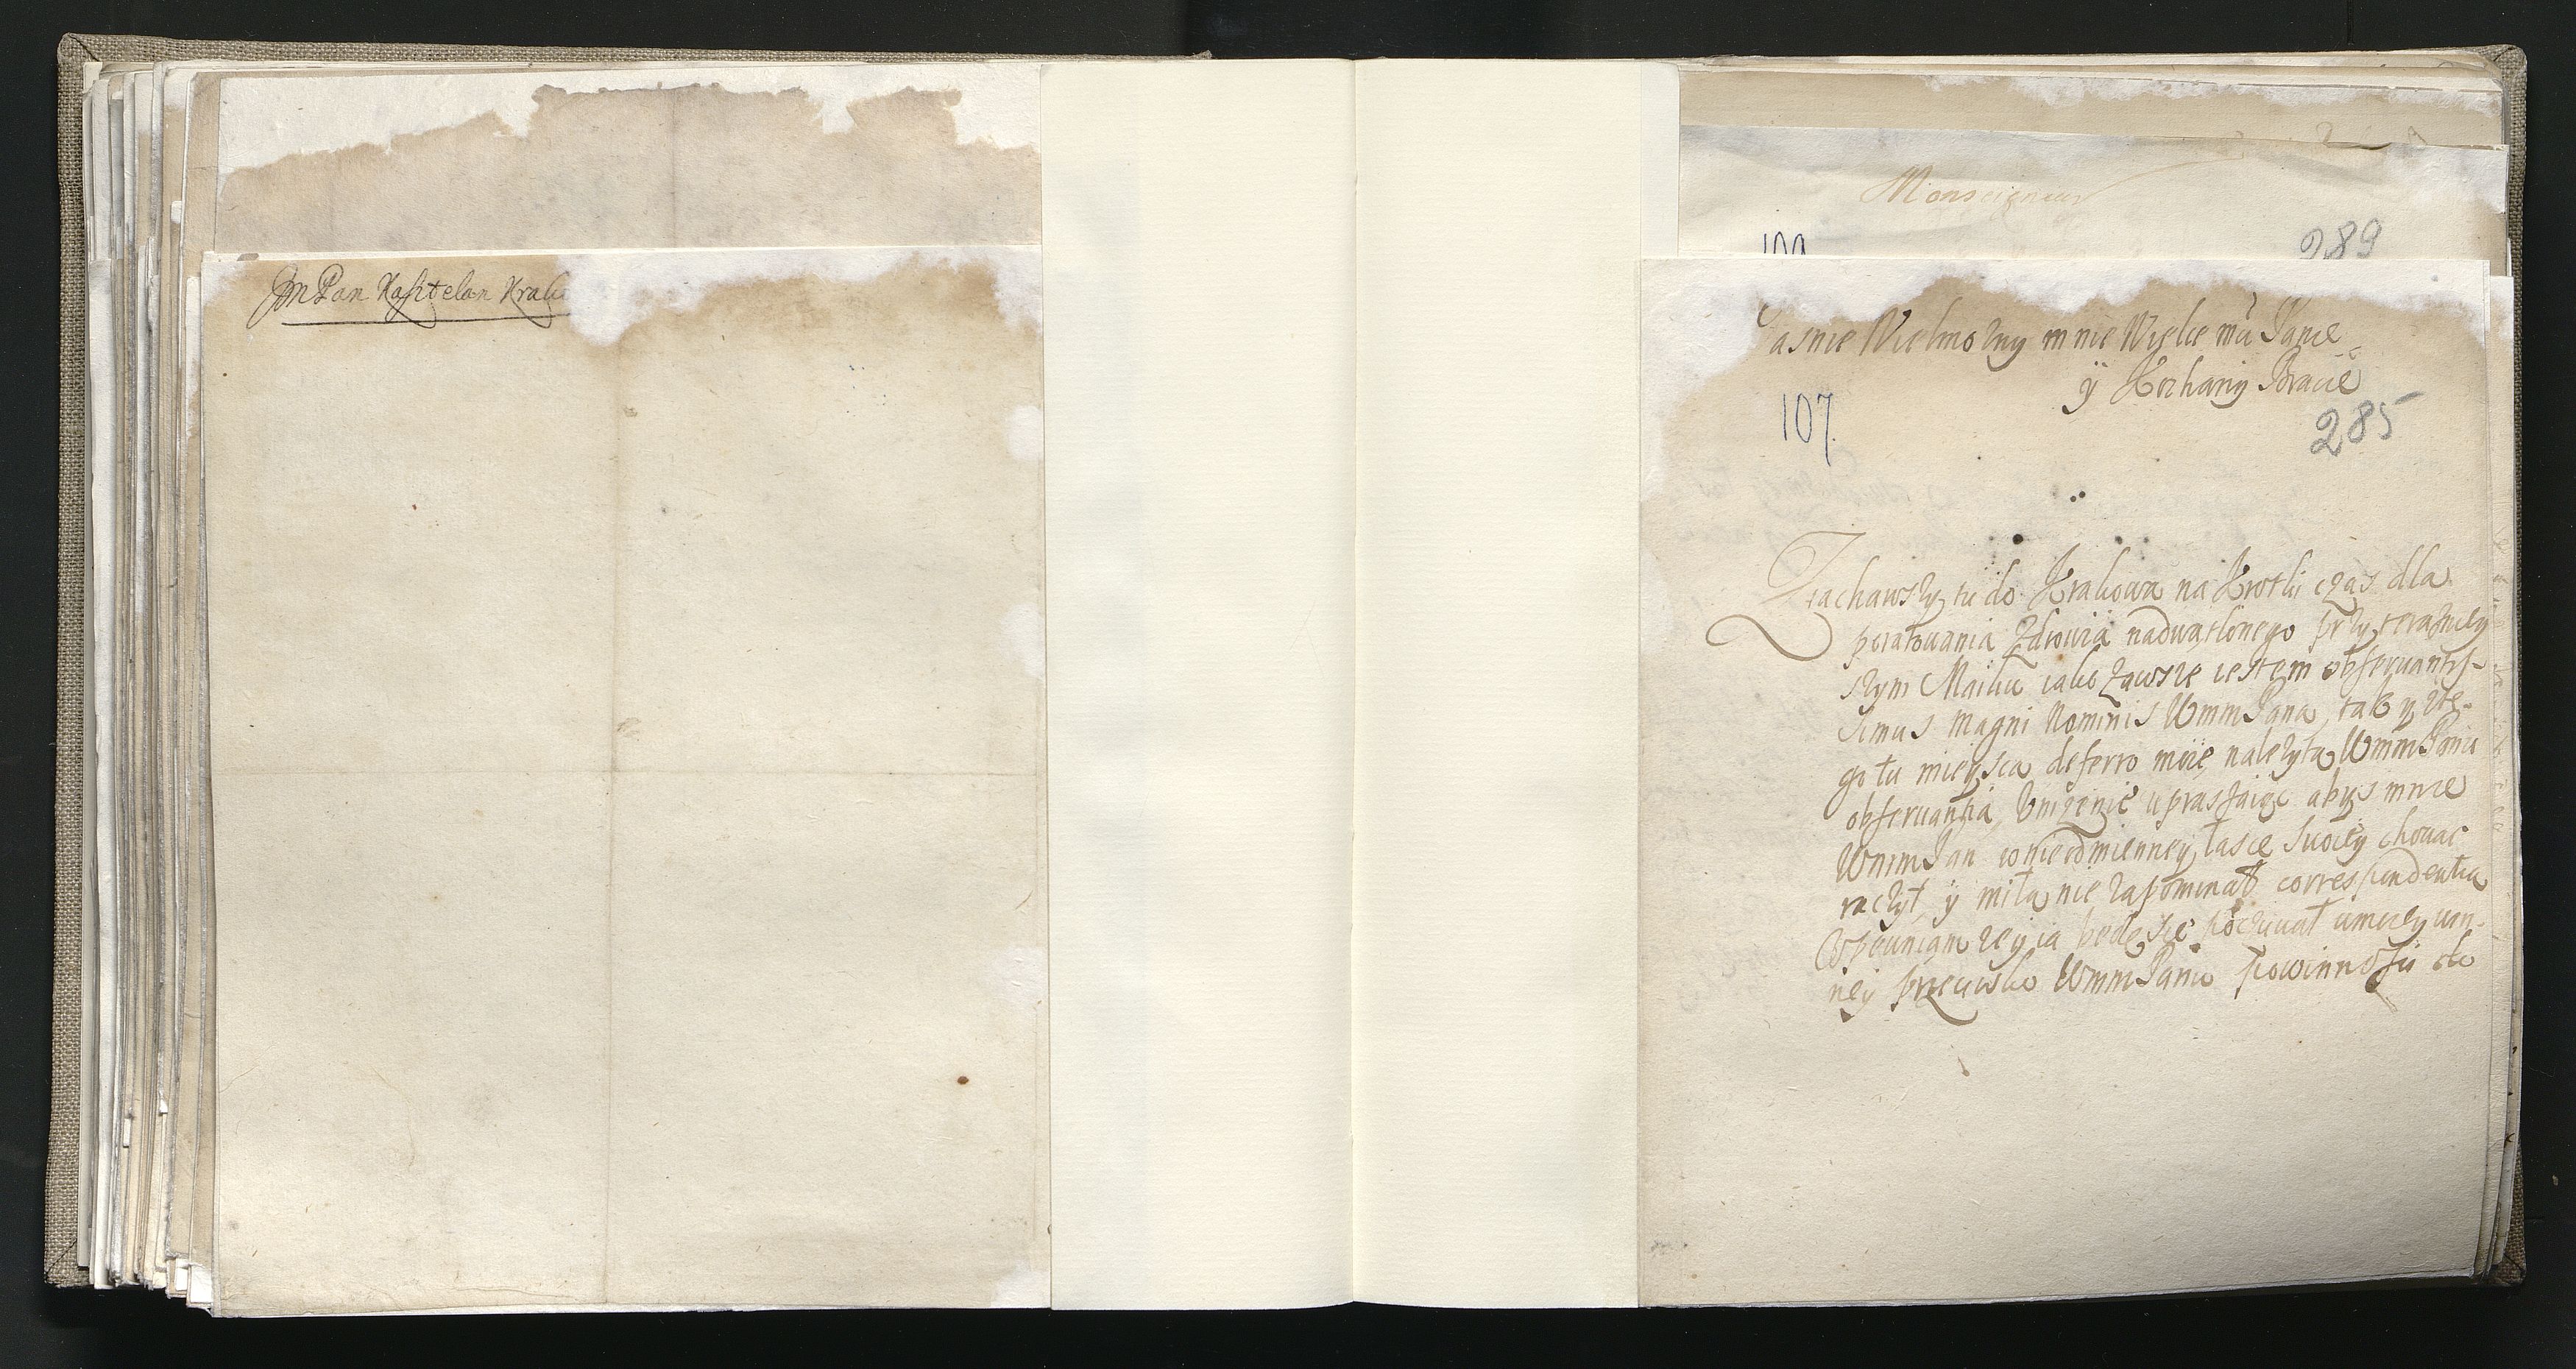 JM Pan Kasztelan Krak
Monseigneur
289
Jasnie Wielmozny mnie Wielce mű Panie
ÿ Kochany Bracie
107.
285
Ziachawszy tu do Krakowa na Krotki czas dla
poratowania Zdrowia nadwątlonego przy terazniey
szym Maiku iako zawsze iestem obserwantis-
simus Magni Nominis WmmPana, tak y z te-
go tu mieysca deferro moię należytą WmmPanu
obserwantią, Unizenie upraszaiąc abys mnie
WmmPan w nieodmienney łasce swoiey chować
raczył, ÿ miłą nie zapominał correspondentią
ia będę się poczuwał
ney przeciwko WmmPanu powinnosci do